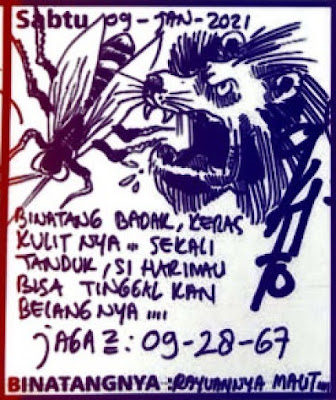 Sabtu 09-JAN-2021
BINATANG BADAK, KERAS
KULIT NYA .. SEKALI
TANDUK, SI HARIMAU
BISA TINGGAL KAN
BELANG NYA ....
JAGA2 : 09-28-67
BINATANGNYA : RAYUANNYA MAUT...